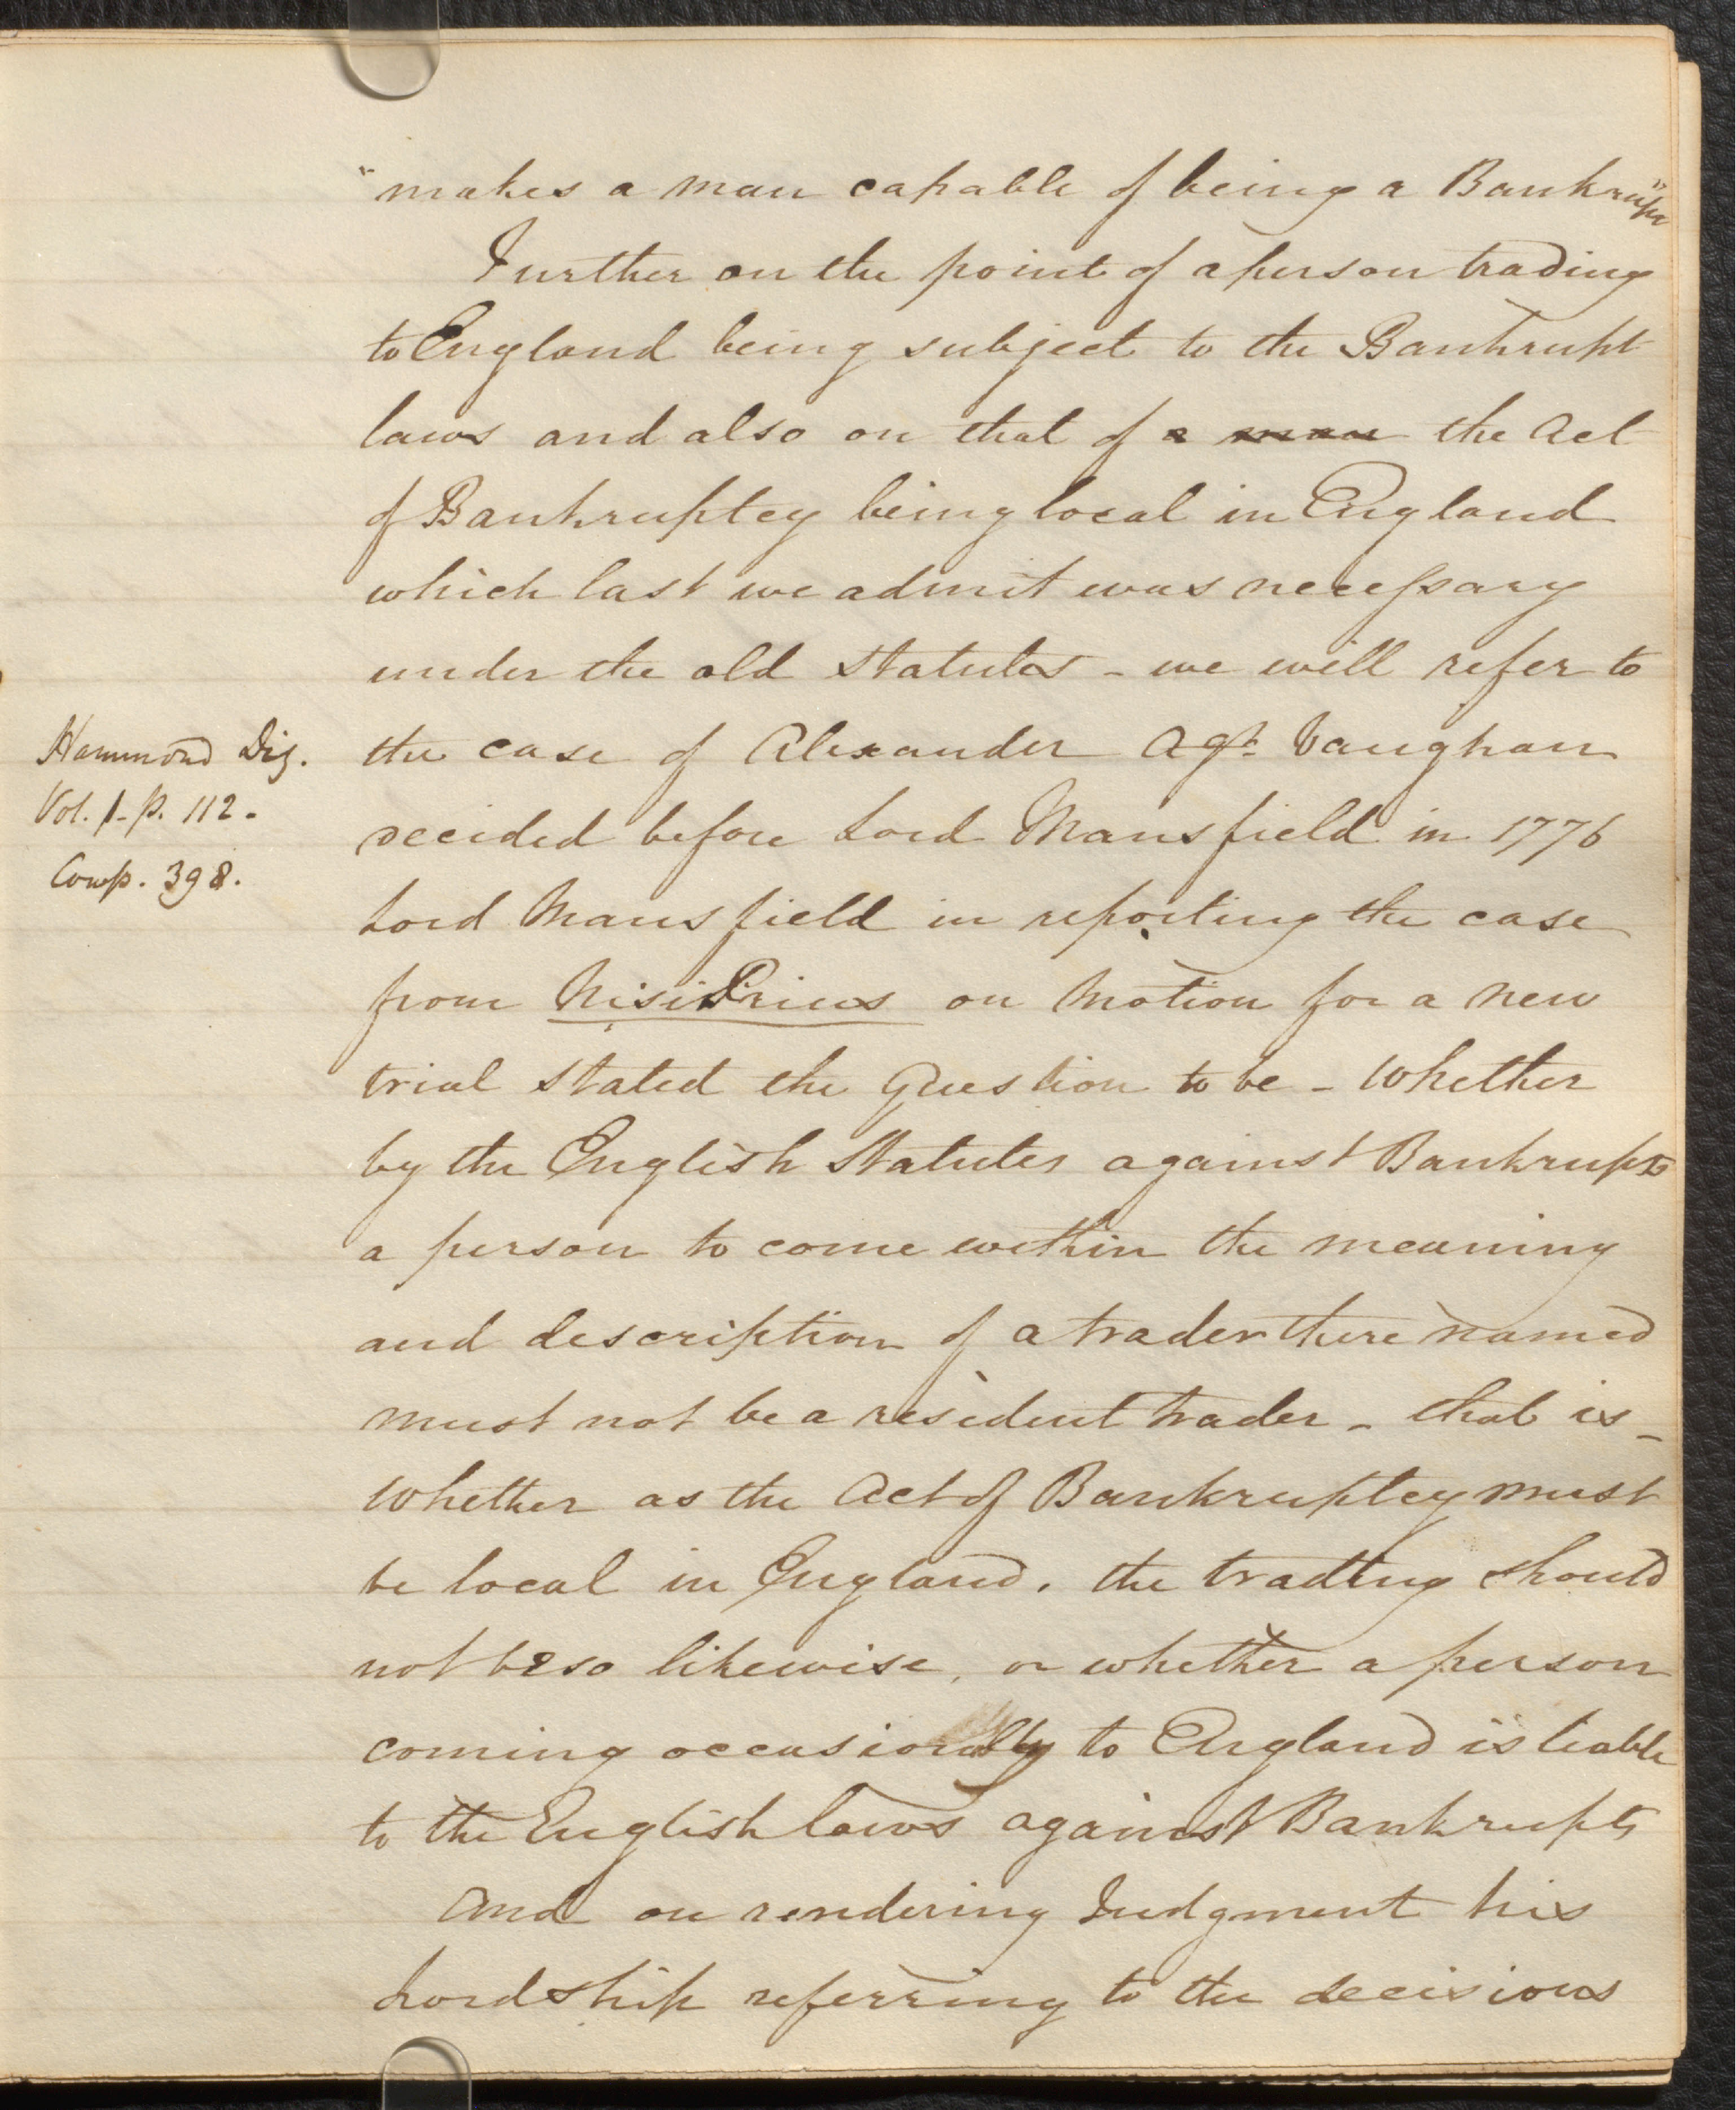 "makes a man capable of being a Bankrupt"
Further on the point of a person trading
to England being subject to the Bankrupt
laws and also on that of a man the Act
of Bankruptcy being local in England
which last we admit was necessary
under the old Statutes - we will refer to
the case of Alexander Agt. Vaughan
decided before Lord Mansfield in 1776
Lord Mansfield in reporting the case
from Nisi Prius on Motion for a new
trial stated the Question to be - Whether
by the English Statutes against Bankrupts
a person to come within the meaning
and description of a trader there named
must not be a resident trader - that is -
Whether as the Act of Bankruptcy must
be local in England, the trading should
not be so likewise, or whether a person
coming occasionally to England is liable
to the English laws against Bankrupts
And on rendering Judgment his
Lordship referring to the decisions
Hammond Dig.
Vol. 1 - p. 112 -
Cowp. 398.